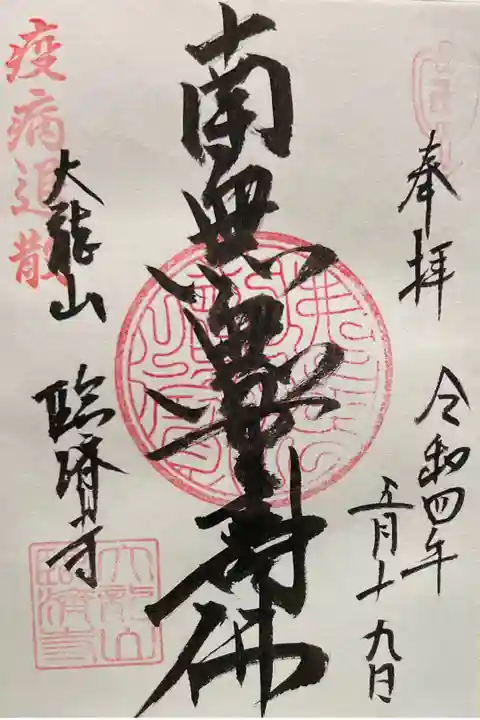 奉拝
令和四年
五月十九日
南無無量寿佛
疫病退散
大龍山
臨済寺
大龍山
臨済寺